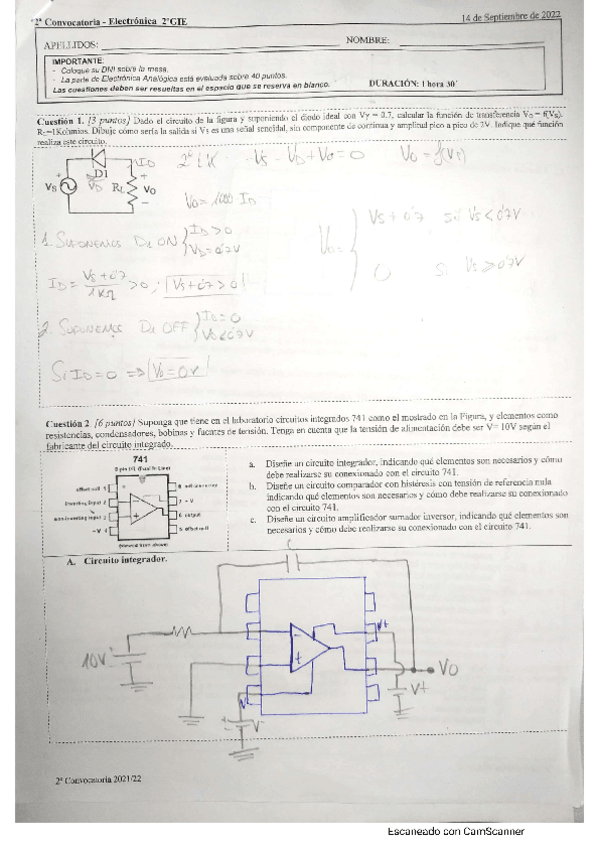 2ª Convocatoria - Electrónica 2ºGIE
14 de Septiembre de 2022
APELLIDOS:
NOMBRE:
IMPORTANTE:
- Coloque su DNI sobre la mesa.
- La parte de Electrónica Analógica está evaluada sobre 40 puntos.
Las cuestiones deben ser resueltas en el espacio que se reserva en blanco.
DURACIÓN: 1 hora 30'
Cuestión 1. [3 puntos] Dado el circuito de la figura y suponiendo el diodo ideal con Vγ = 0.7, calcular la función de transferencia Vo = f(Vs).
RL=1Kohmios. Dibuje cómo sería la salida si Vs es una señal senoidal, sin componente de continua y amplitud pico a pico de 2V. Indique qué función
realiza este circuito.
D1
ID
VD
Vs
RL
Vo
2º LK -Vs - VD + Vo = 0 Vo = f(Vs)
Vo = 1000 ID
1. SUPONEMOS D1 ON { ID > 0
VD = 0'7V
ID = Vs + 0'7 / 1KΩ > 0 ; Vs + 0'7 > 0
Vo = { Vs + 0'7 si Vs < 0'7V
0 si Vs ≥ 0'7V
2. SUPONEMOS D1 OFF { ID = 0
VD < 0'7V
Si ID = 0 ⇒ Vo = 0V
Cuestión 2 [6 puntos] Suponga que tiene en el laboratorio circuitos integrados 741 como el mostrado en la Figura, y elementos como
resistencias, condensadores, bobinas y fuentes de tensión. Tenga en cuenta que la tensión de alimentación debe ser V= 10V según el
fabricante del circuito integrado.
741
offset null 1
inverting input 2
non-inverting input 3
-V 4
7 +V
6 output
5 offset null
a. Diseñe un circuito integrador, indicando qué elementos son necesarios y cómo
debe realizarse su conexionado con el circuito 741.
b. Diseñe un circuito comparador con histéresis con tensión de referencia nula
indicando qué elementos son necesarios y cómo debe realizarse su conexionado
con el circuito 741.
c. Diseñe un circuito amplificador sumador inversor, indicando qué elementos son
necesarios y cómo debe realizarse su conexionado con el circuito 741.
A. Circuito integrador.
C
V+
10V
VO
V+
V-
V-
2ª Convocatoria 2021/22
Escaneado con CamScanner